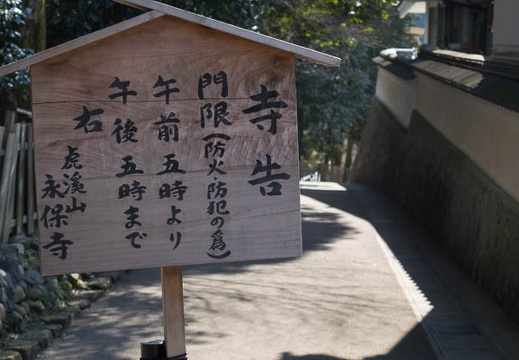 寺告
門限(防火・防犯の為)
午前五時より
午後五時まで
右
虎溪山
永保寺